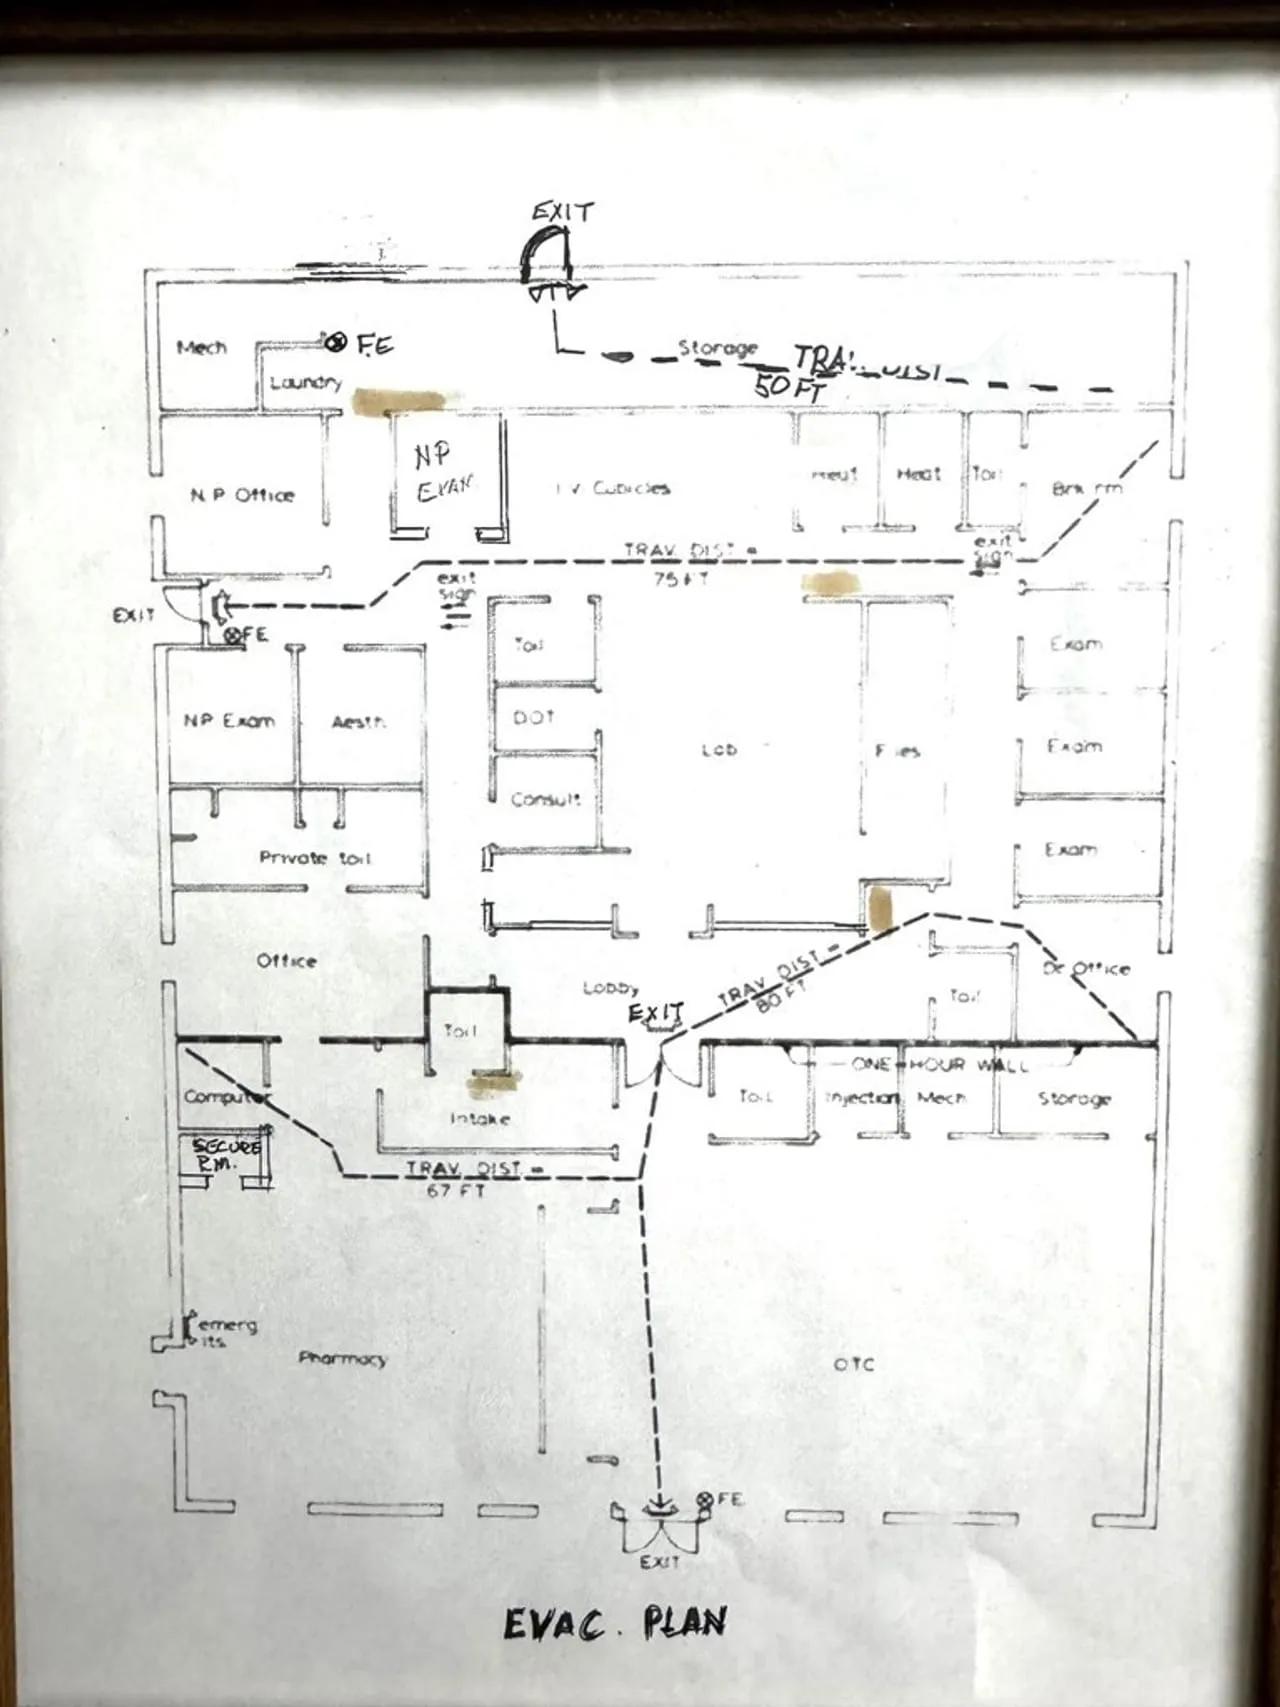 EXIT
Mech
F.E
Storage
DIST
50 FT
Laundry
NP
N P Office
I V Cubicles
Heat
Heat
Toil
Brk rm
TRAV. DIST =
75 FT
exit
sign
exit
sign
EXIT
FE
Toil
Exam
NP Exam
Aesth.
DOT
Lab
Files
Exam
Consult
Exam
Private toil
Office
Lobby
TRAV. DIST =
80 FT
Dr Office
Toil
EXIT
Toil
ONE-HOUR WALL
Computer
Intake
Toil
Injection
Mech
Storage
SECURE
RM.
TRAV. DIST. =
67 FT
emerg
lts
Pharmacy
OTC
FE
EXIT
EVAC. PLAN